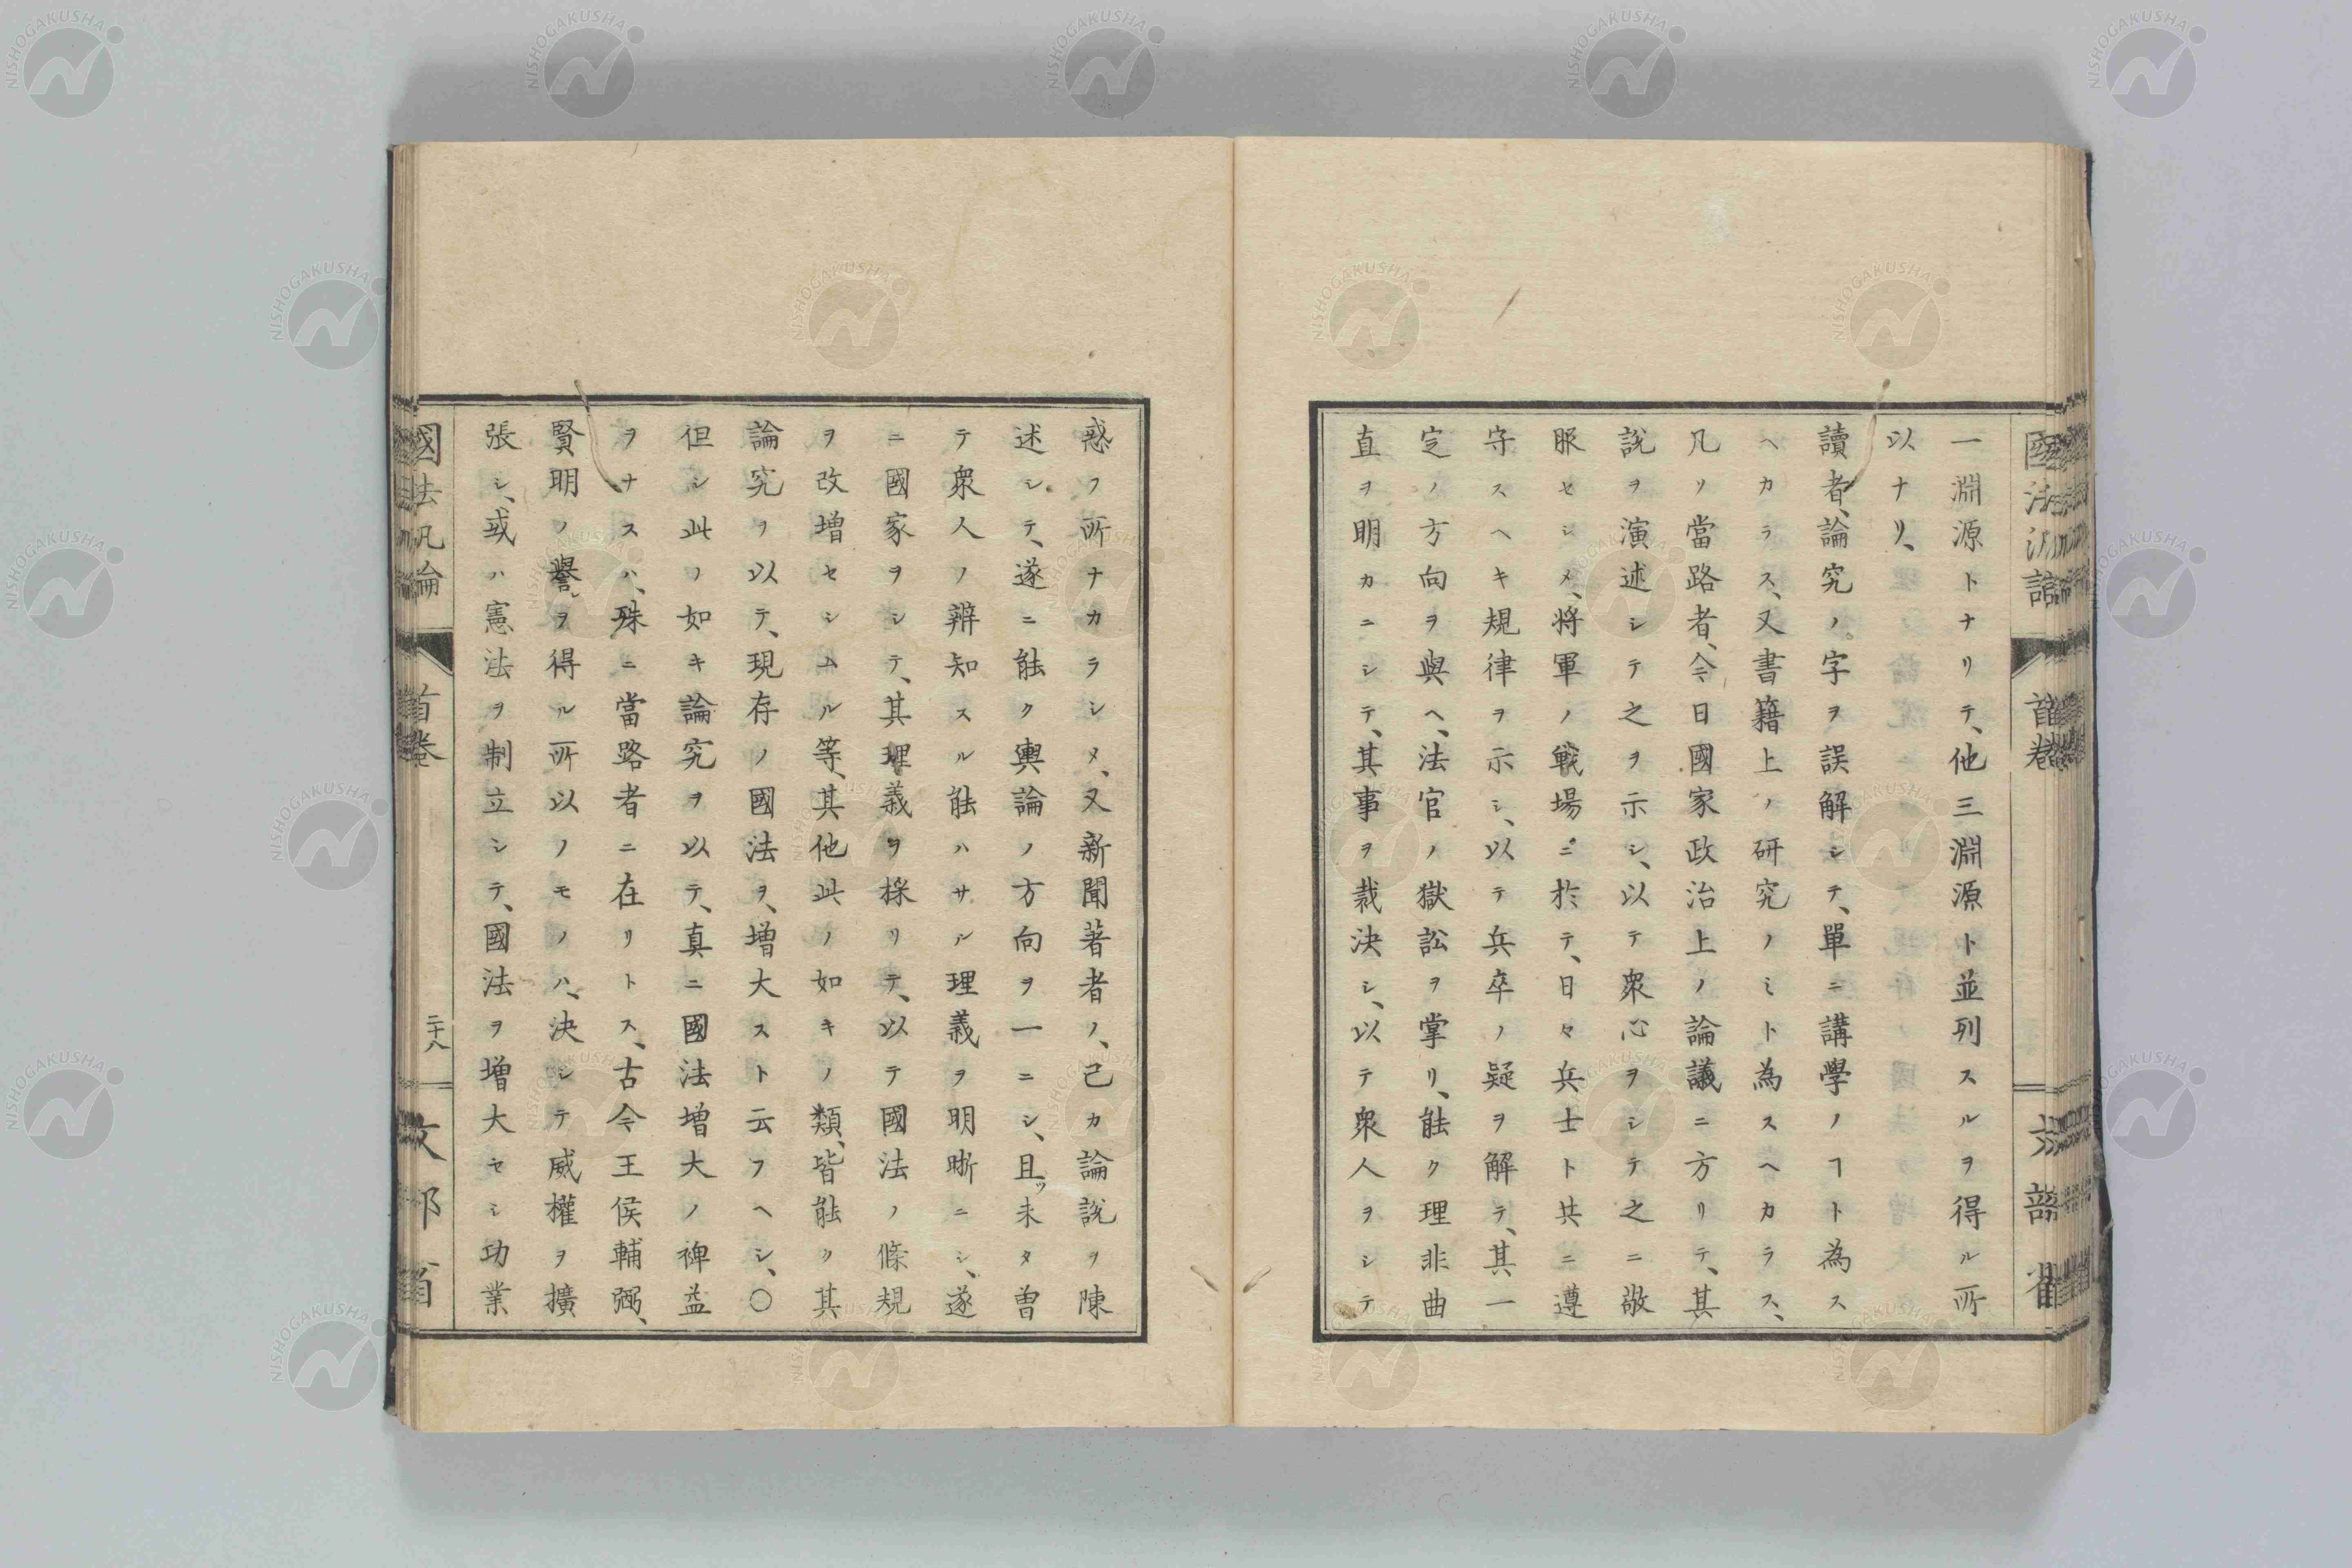 一淵源トナリテ、他三淵源ト並列スルヲ得ル所
以ナリ、
讀者、論究ノ字ヲ誤解シテ、單ニ講學ノヿト為ス
ヘカラス、又書籍上ノ研究ノミト為スヘカラス、
凡ソ當路者、今日國家政治上ノ論議ニ方リテ、其
説ヲ演述シテ之ヲ示シ、以テ衆心ヲシテ之ニ敬
服セシメ、将軍ノ戦場ニ於テ、日々兵士ト共ニ遵
守スヘキ規律ヲ示シ、以テ兵卒ノ疑ヲ解テ、其一
定ノ方向ヲ與ヘ、法官ノ獄訟ヲ掌リ、能ク理非曲
直ヲ明カニシテ、其事ヲ裁決シ、以テ衆人ヲシテ
惑フ所ナカラシメ、又新聞著者ノ、己カ論説ヲ陳
述シテ、遂ニ能ク輿論ノ方向ヲ一ニシ、且ツ未タ曽
テ衆人ノ辨知スル能ハサル理義ヲ明晰ニシ、遂
ニ國家ヲシテ、其理義ヲ採リテ、以テ國法ノ條規
ヲ改増セシムル等、其他此ノ如キノ類、皆能ク其
論究ヲ以テ、現存ノ國法ヲ、増大スト云フヘシ、〇
但シ此ノ如キ論究ヲ以テ、真ニ國法増大ノ裨益
ヲナスハ、殊ニ當路者ニ在リトス、古今王侯輔弼、
賢明ノ譽ヲ得ル所以ノモノハ、決シテ威權ヲ擴
張シ、或ハ憲法ヲ制立シテ、國法ヲ増大セシ功業
國法汎論 首巻 二十八 文部省
NISHOGAKUSHA